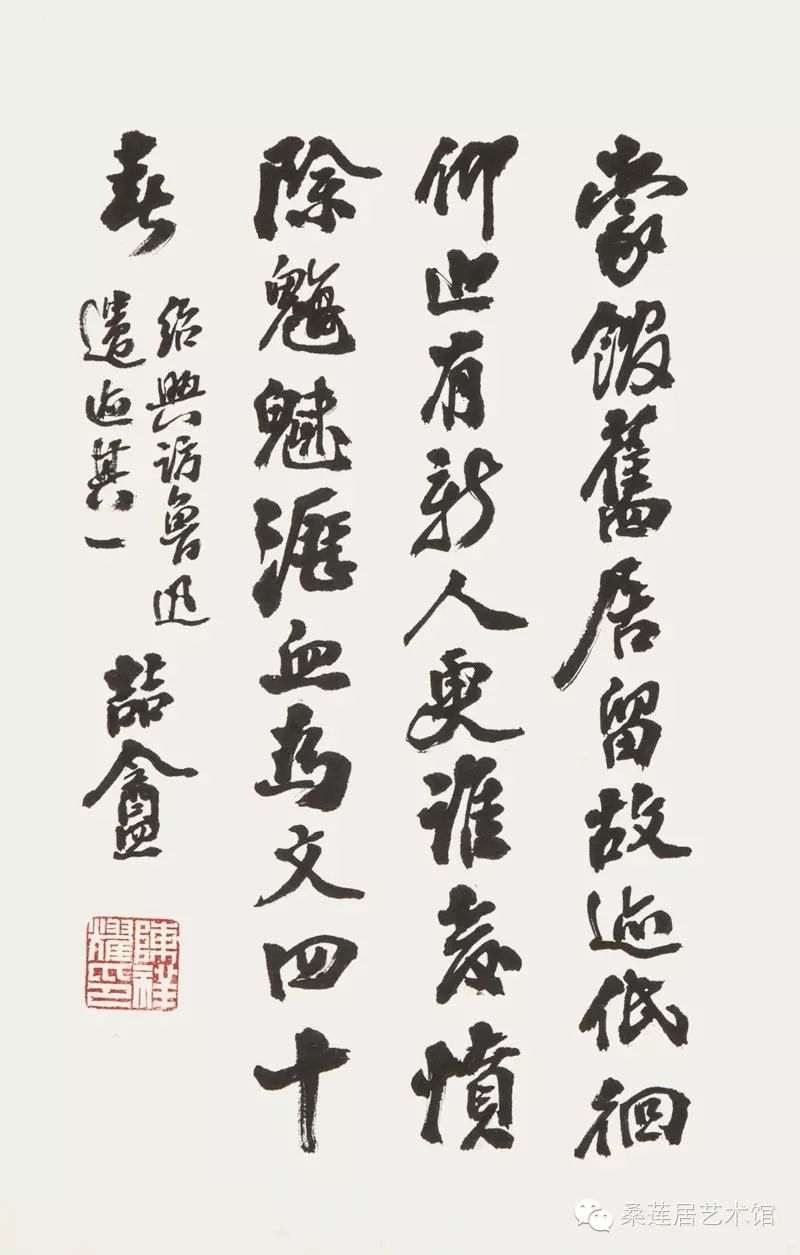 蒙館舊居留故迹低徊
仰止有新人更誰發憤
除魑魅瀝血為文四十
春
紹興訪魯迅
遺迹其一
喆盦
陳祥耀印
桑莲居艺术馆